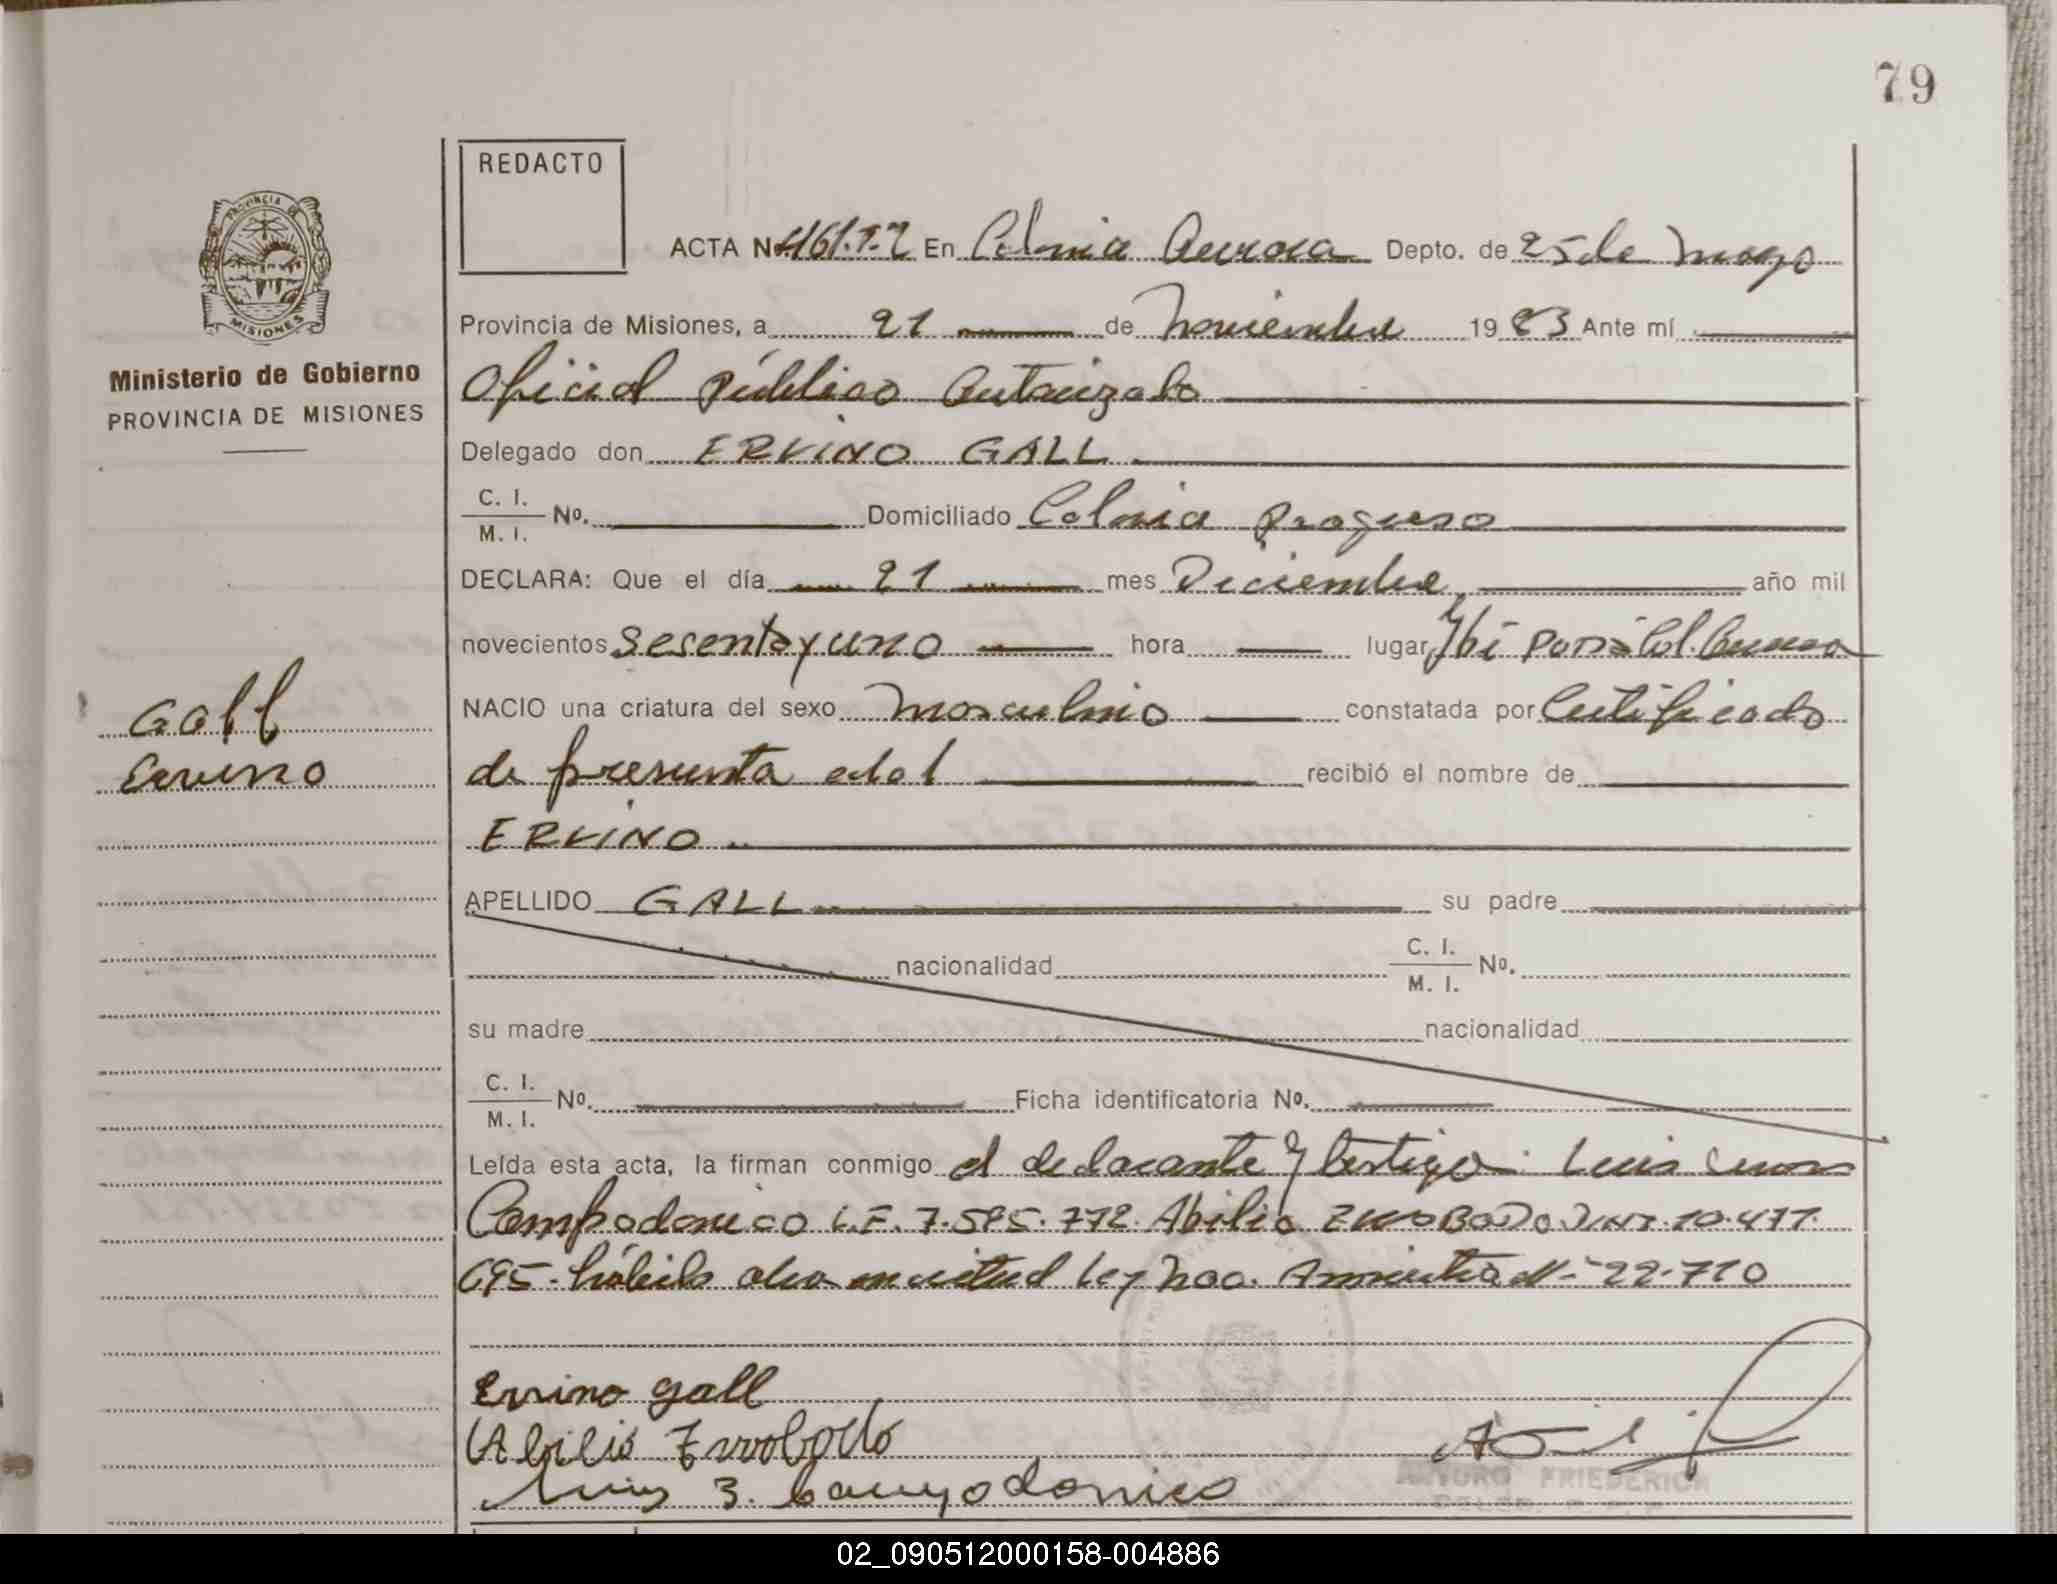 79
REDACTO
PROVINCIA DE
MISIONES
Ministerio de Gobierno
PROVINCIA DE MISIONES
ACTA Nº 461.T.2 En Colonia Aurora Depto. de 25 de Mayo
Provincia de Misiones, a 21 de Noviembre 1983 Ante mí
Oficial Público Autorizado
Delegado don ERVINO GALL.
C. I.
M. I. Nº. Domiciliado Colonia Progreso
DECLARA: Que el día 21 mes Diciembre año mil
novecientos sesenta y uno hora lugar Col. Aurora
NACIO una criatura del sexo Masculino constatada por Certificado
de presunta edad recibió el nombre de
ERVINO
APELLIDO GALL su padre
nacionalidad C. I.
M. I. Nº.
su madre nacionalidad
C. I.
M. I. Nº. Ficha identificatoria Nº.
Leída esta acta, la firman conmigo el declarante y testigo: Luis
Campodonico L.E. 7.595.772. Abilio 10.477.
695. Ley Nac. Amnistia Nº 22.710
Gall
Ervino
Ervino gall
Abilio
Luis 3. Campodonico
ARTURO FRIEDERICH
02_090512000158-004886